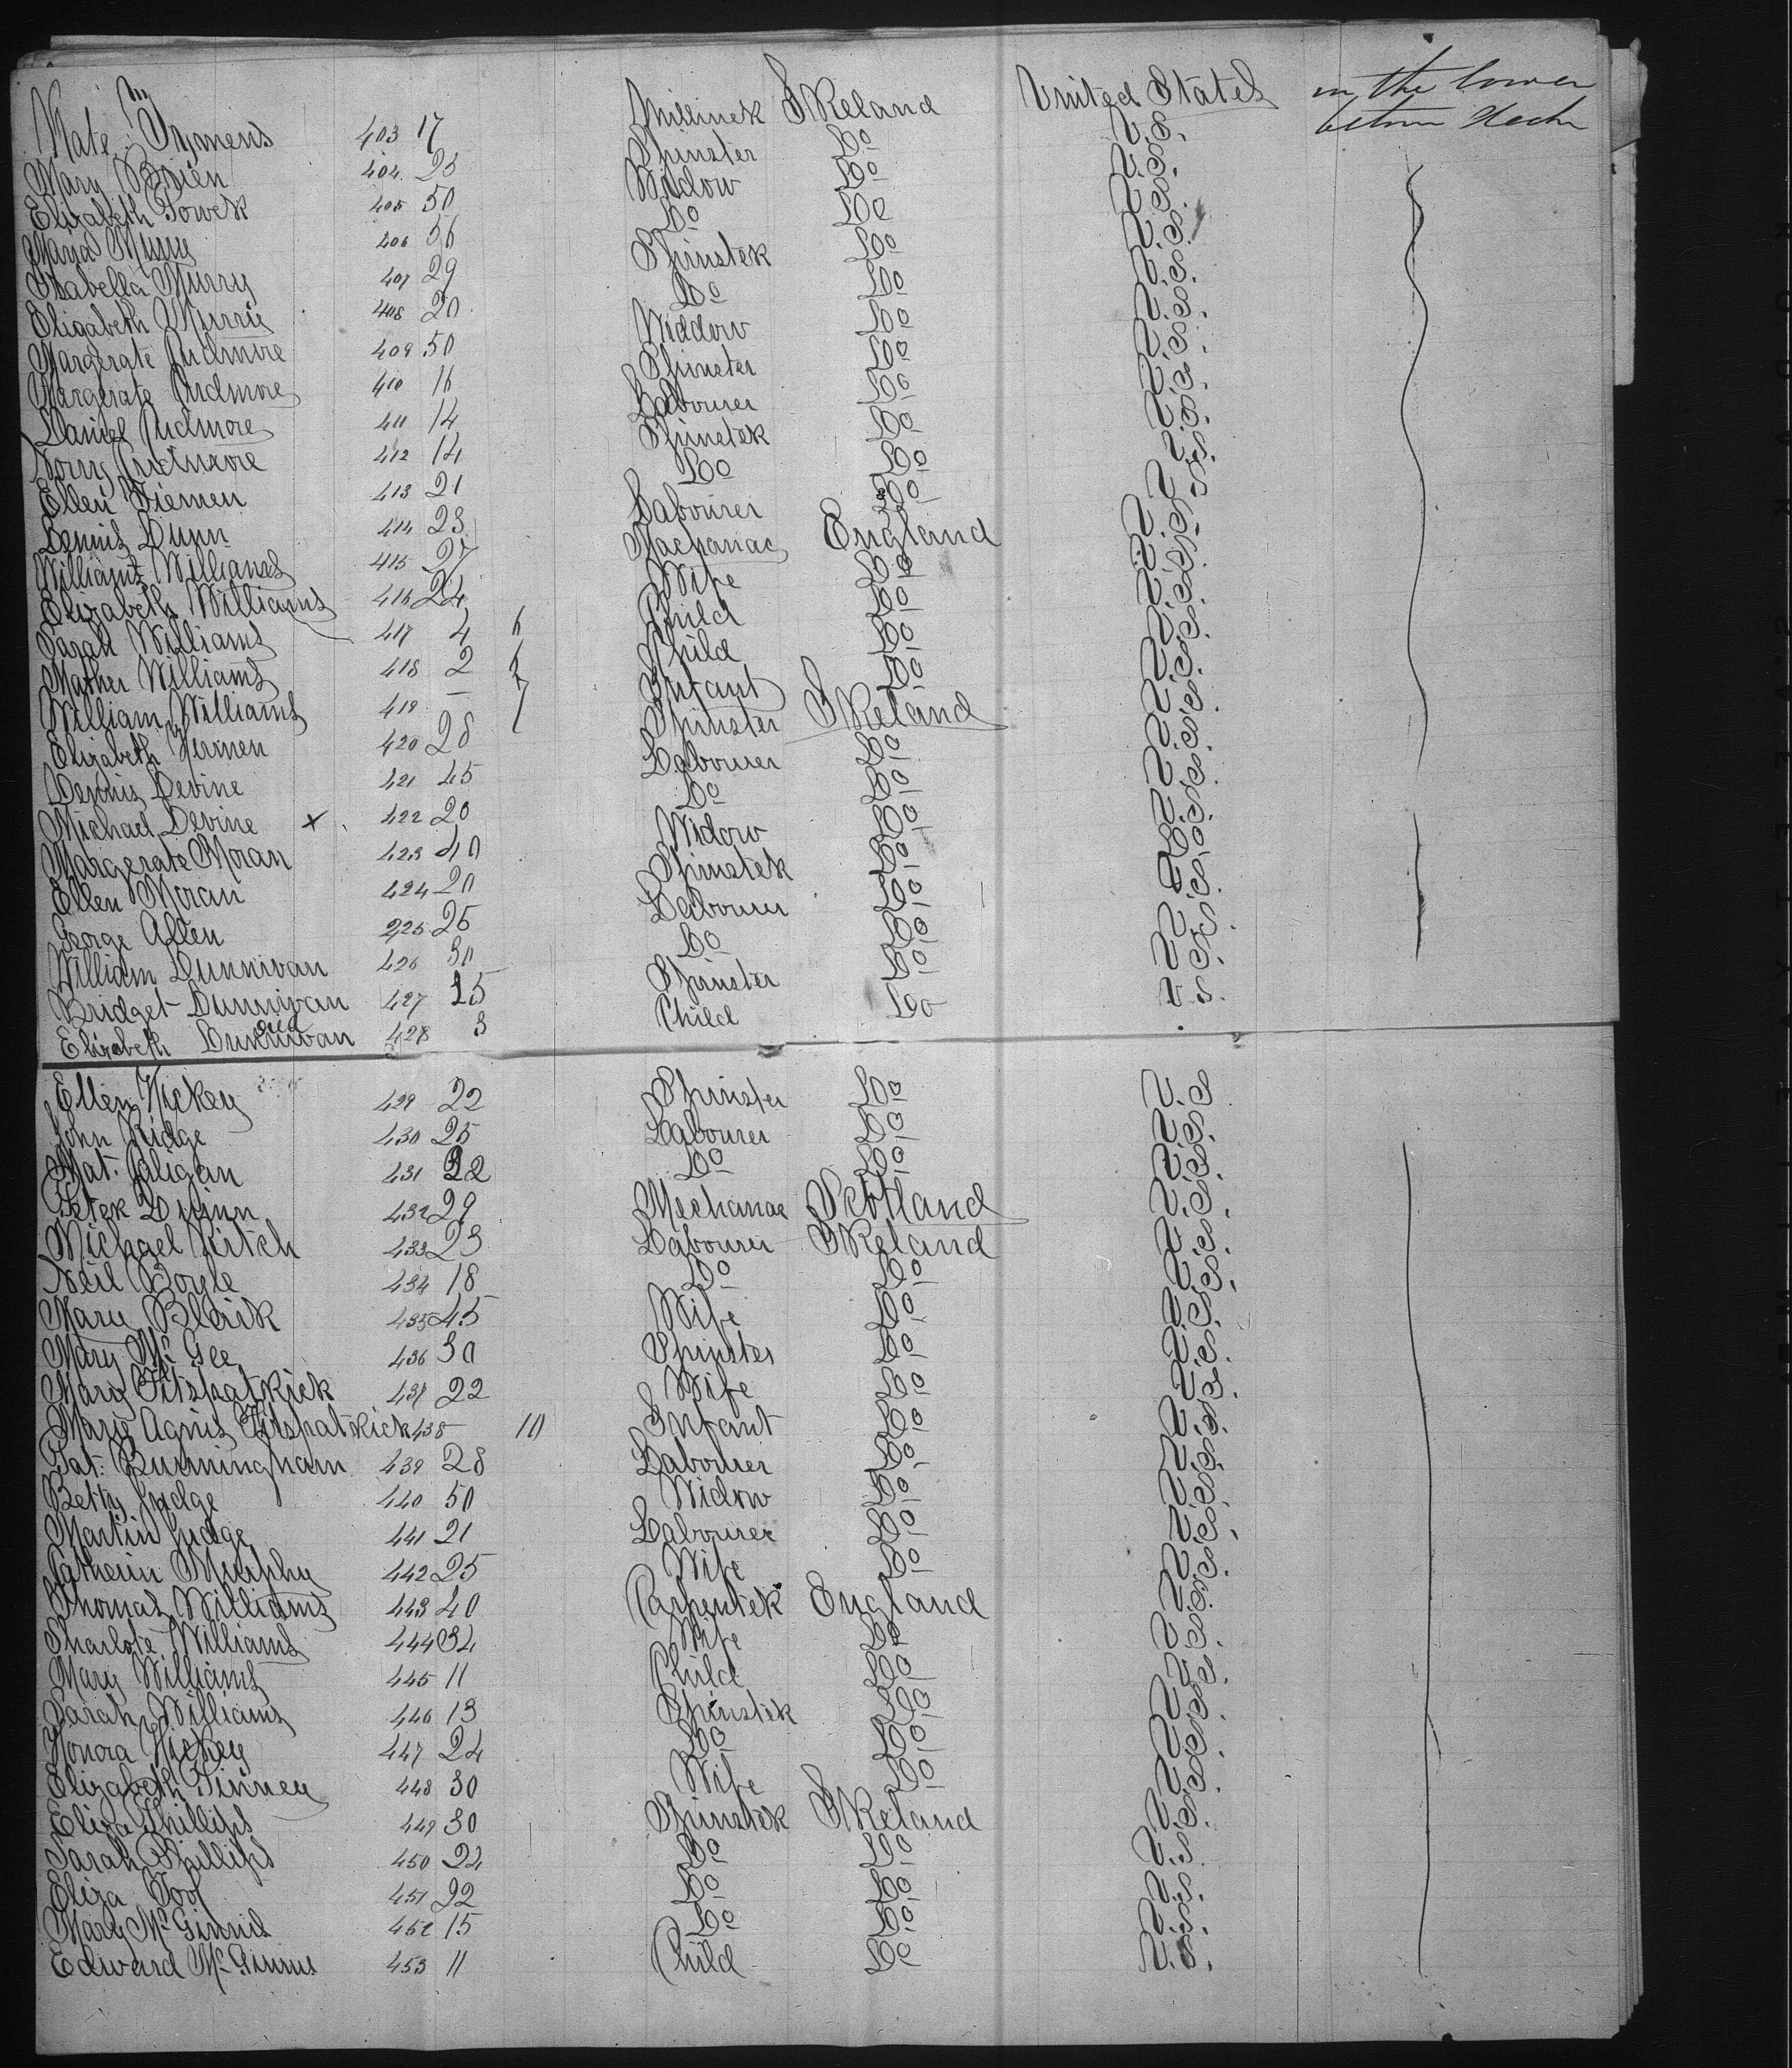 Kate Tymens 403 17 Milliner IReland United States in the lower
Mary Brien 404 Spinster Do U.S. betwn Decks
Elizabeth Power 405 50 Widow Do U.S.
Maria 406 56 Do Do U.S.
Isabella Murry 407 29 Spinster Do U.S.
Elizabeth Murrie 408 20 Do Do U.S.
Margerate Cudmore 409 50 Widdow Do U.S.
Margerate Cudmore 410 16 Spinster Do U.S.
Daniel Cudmore 411 14 Labourer Do U.S.
Norry Cudmore 412 12 Spinster Do U.S.
Ellen 413 21 Do Do U.S.
Dennis Dunn 414 23 Labourer Do U.S.
Williams Williams 415 27 Machanac England U.S.
Elizabeth Williams 416 24 Wife Do U.S.
Sarah Williams 417 4 Child Do U.S.
Mather Williams 418 2 Child Do U.S.
William Williams 419 – Infant Do U.S.
Elizabeth 420 28 Spinster IReland U.S.
Dennis Devine 421 45 Labourer Do U.S.
Michael Devine x 422 20 Do Do U.S.
Margerate Moran 423 40 Widow Do U.S.
Ellen Moran 424 20 Spinster Do U.S.
George Allen 225 25 Labourer Do U.S.
William Dunnivan 426 30 Do Do U.S.
Bridget Dunnivan 427 25 Spinster Do U.S.
Elizabeth Dunnivan 428 3 Child Do
Ellen Hickey 429 22 Spinster Do U.S.
John Ridge 430 25 Labourer Do U.S.
Mat. Galigan 431 22 Do Do U.S.
Peter Dunn 432 29 Mechanac Scotland U.S.
Michael Kirtch 433 23 Labourer IReland U.S.
Neil Boyle 434 18 Do Do U.S.
Mary Blark 435 45 Wife Do U.S.
Mary Mc Gee 436 30 Spinster Do U.S.
Mary Fitspatrick 437 22 Wife Do U.S.
Marie Agnis Fitspatrick 438 10 Infant Do U.S.
Pat. Bunningham 439 28 Labourer Do U.S.
Betty Judge 440 50 Widow Do U.S.
Martin Judge 441 21 Labourer Do U.S.
Catherin Murphy 442 25 Wife Do U.S.
Thomas Williams 443 40 Carpenter England U.S.
Charlote Williams 444 34 Wife Do U.S.
Mary Williams 445 11 Child Do U.S.
Sarah Williams 446 13 Spinster Do U.S.
Honora Hickey 447 24 Do Do U.S.
Elizabeth Finney 448 30 Wife Do U.S.
Eliza Phillips 449 30 Spinster IReland U.S.
Sarah Phillips 450 22 Do Do U.S.
Eliza Tool 451 22 Do Do U.S.
Mary Mc Ginnis 452 15 Do Do U.S.
Edward Mc Ginnis 453 11 Child Do U.S.